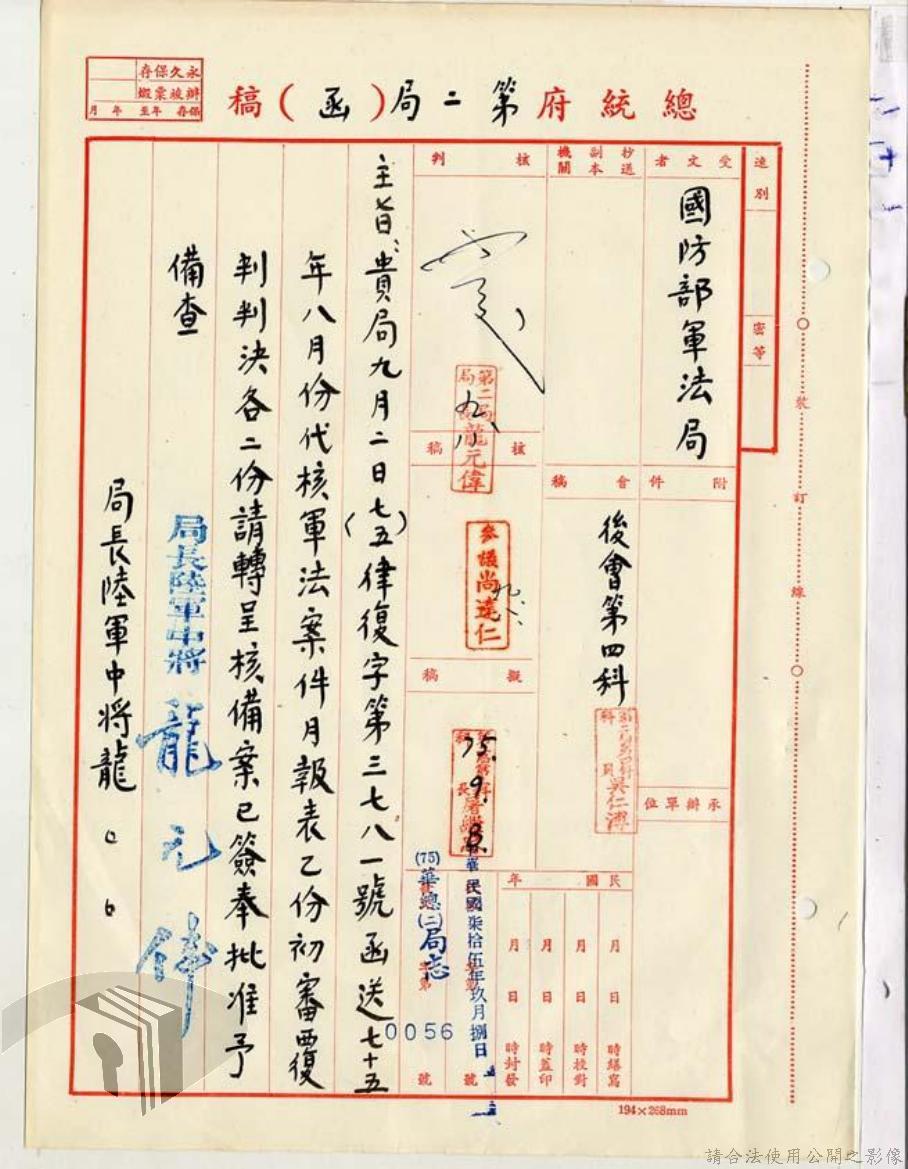 總統府第二局(函)稿
永久保存
辦竣票繳
保存 年至 年 月
速別
密等
受文者
國防部軍法局
抄送副本機關
核判
九八
第二局局長龍元偉
附件
會稿
後會第四科
第二局第四科科員吳仁溥
核稿
參議尚達仁
九、八、
擬稿
75.9.8.
承辦單位
民國 年
月 日 時繕寫
月 日 時校對
月 日 時蓋印
月 日 時封發
中華民國柒拾伍年玖月捌日
(75)華總(二)局志
字第 號
0056
主旨:貴局九月二日(七五)律復字第三七八一號函送七十五
年八月份代核軍法案件月報表乙份初審覆
判判決各二份請轉呈核備案已簽奉批准予
備查
局長陸軍中將龍元偉
局長陸軍中將龍○○
裝 訂 線
194×268mm
請合法使用公開之影像